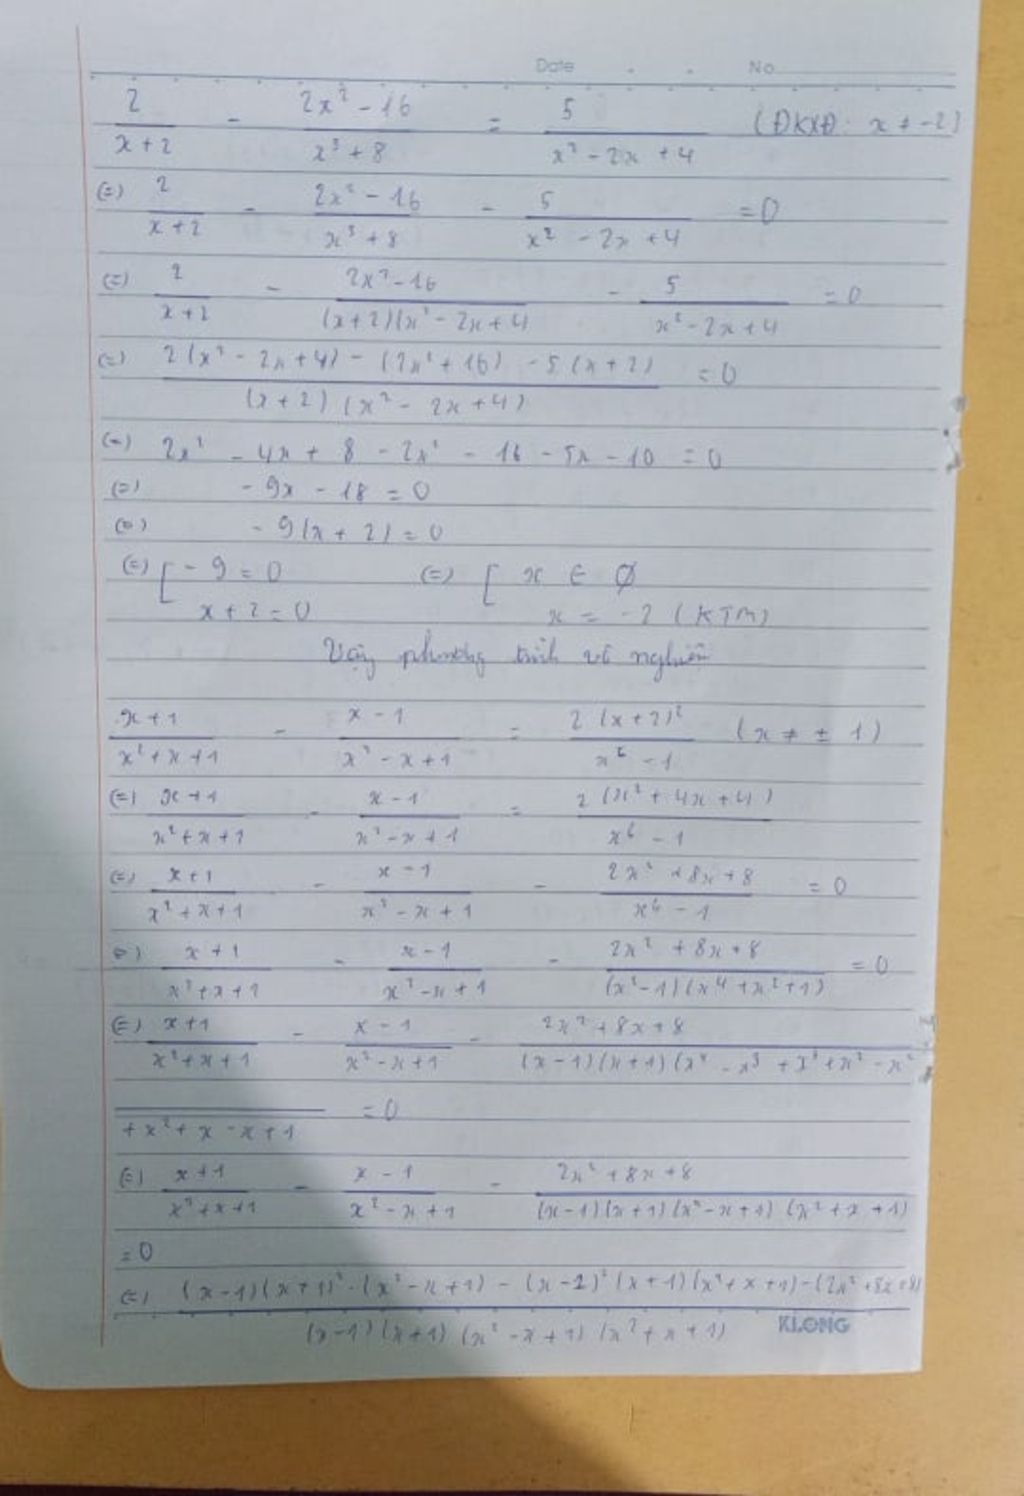 Date . . No
2/(x+2) - (2x² - 16)/(x³ + 8) = 5/(x² - 2x + 4) (ĐKXĐ: x ≠ -2)
(=) 2/(x+2) - (2x² - 16)/(x³ + 8) - 5/(x² - 2x + 4) = 0
(=) 2/(x+2) - (2x² - 16)/((x+2)(x² - 2x + 4)) - 5/(x² - 2x + 4) = 0
(=) (2(x² - 2x + 4) - (2x² + 16) - 5(x + 2))/((x+2)(x² - 2x + 4)) = 0
(=) 2x² - 4x + 8 - 2x² - 16 - 5x - 10 = 0
(=) - 9x - 18 = 0
(=) - 9(x + 2) = 0
(=) [ - 9 = 0 (=) [ x ∈ Ø
x + 2 = 0 x = -2 (KTM)
Vậy phương trình vô nghiệm
(x+1)/(x² + x + 1) - (x - 1)/(x² - x + 1) = 2(x+2)²/(x⁶ - 1) (x ≠ ± 1)
(=) (x+1)/(x² + x + 1) - (x - 1)/(x² - x + 1) = 2(x² + 4x + 4)/(x⁶ - 1)
(=) (x+1)/(x² + x + 1) - (x - 1)/(x² - x + 1) - (2x² + 8x + 8)/(x⁶ - 1) = 0
(=) (x+1)/(x² + x + 1) - (x - 1)/(x² - x + 1) - (2x² + 8x + 8)/((x² - 1)(x⁴ + x² + 1)) = 0
(=) (x+1)/(x² + x + 1) - (x - 1)/(x² - x + 1) - (2x² + 8x + 8)/((x - 1)(x + 1)(x⁴ - x³ + x³ + x² - x²
+ x² + x - x + 1 = 0
(=) (x+1)/(x² + x + 1) - (x - 1)/(x² - x + 1) - (2x² + 8x + 8)/((x - 1)(x + 1)(x² - x + 1)(x² + x + 1))
= 0
(=) ((x - 1)(x + 1)² . (x² - x + 1) - (x - 1)²(x + 1)(x² + x + 1) - (2x² + 8x + 8))/((x - 1)(x + 1)(x² - x + 1)(x² + x + 1))
KLONG